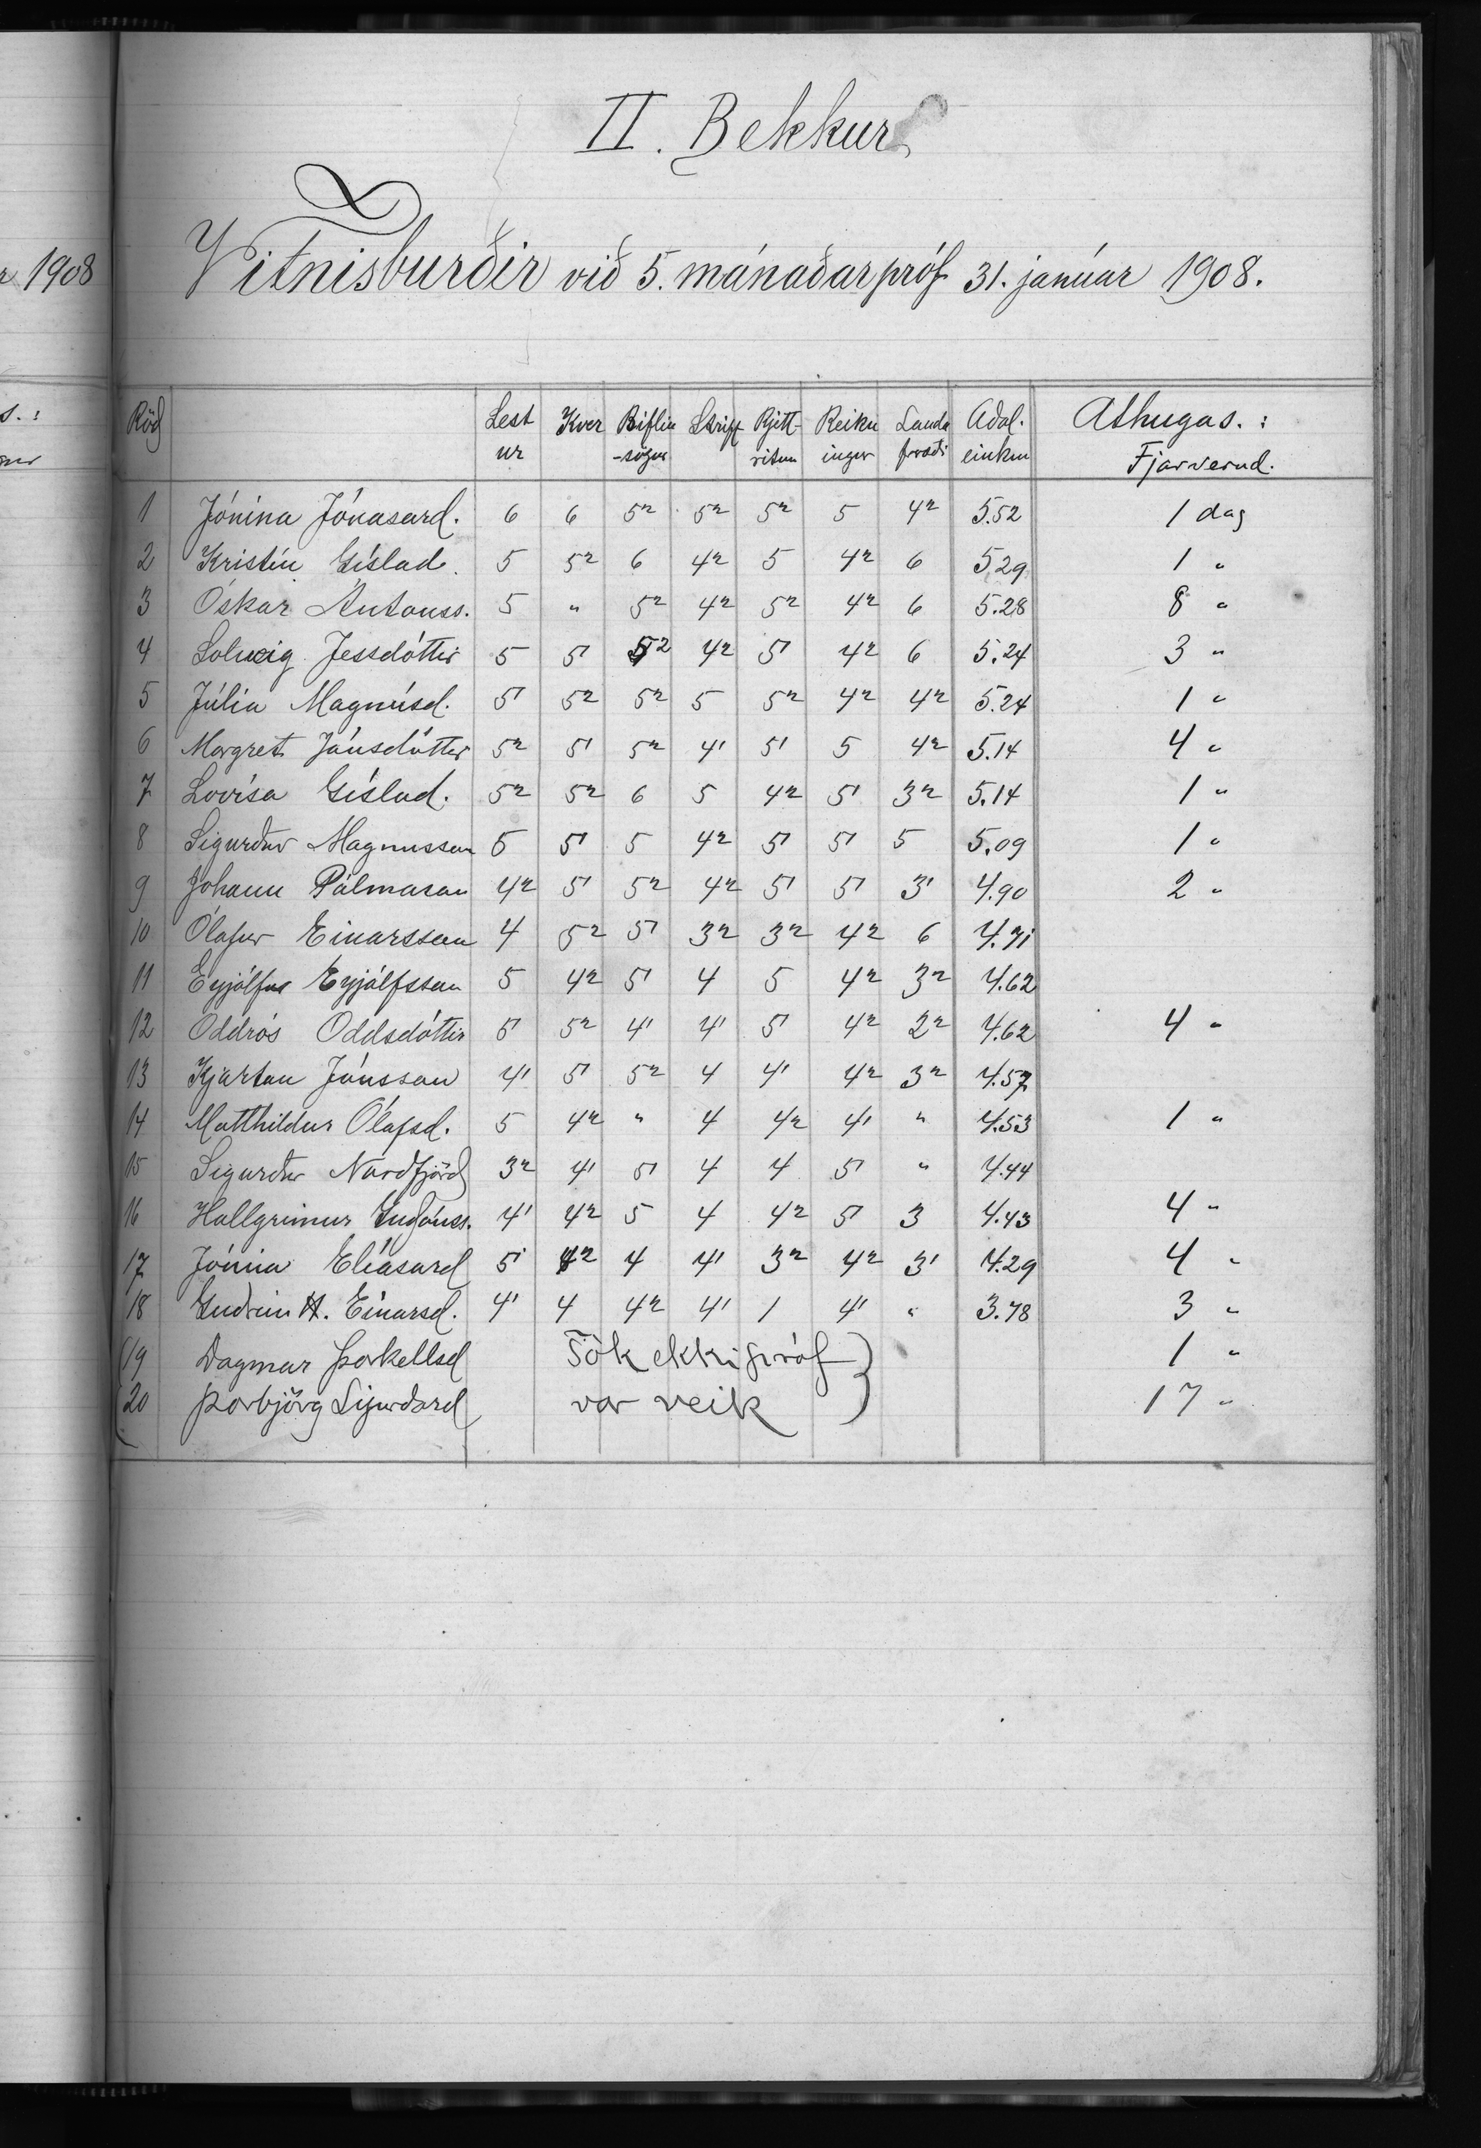 r 1908
s. :
II. Bekkur
Vitnisburðir við 5. mánaðarpróf 31. janúar 1908.
Röð Lestur Kver Biflíu-sögur Skript Rjettritun Reikningur Landafræði Aðal.einkun Athugas. : Fjarverud.
1 Jónína Jónasard. 6 6 5² 5² 5² 5 4² 5.52 1 dag
2 Kristín Gíslad. 5 5² 6 4² 5 4² 6 5.29 1 "
3 Óskar Antonss. 5 " 5² 4² 5² 4² 6 5.28 8 "
4 Solveig Jessdóttir 5 5' 5² 4² 5' 4² 6 5.24 3 "
5 Júlía Magnúsd. 5' 5² 5² 5 5² 4² 4² 5.24 1 "
6 Margret Jónsdóttir 5² 5' 5² 4' 5' 5 4² 5.14 4 "
7 Lovísa Gíslad. 5² 5² 6 5 4² 5' 3² 5.14 1 "
8 Sigurður Magnusson 5 5' 5 4² 5' 5' 5 5.09 1 "
9 Johann Pálmason 4² 5' 5² 4² 5' 5' 3' 4.90 2 "
10 Ólafur Einarsson 4 5² 5' 3² 3² 4² 6 4.71
11 Eyjólfur Eyjólfsson 5 4² 5' 4 5 4² 3² 4.62
12 Oddrós Oddsdóttir 5' 5² 4' 4' 5' 4² 2² 4.62 4 "
13 Kjartan Jónsson 4' 5' 5² 4 4' 4² 3² 4.57
14 Matthildur Ólafsd. 5 4² " 4 4² 4' " 4.53 1 "
15 Sigurður Nordfjörð 3² 4' 5' 4 4 5' " 4.44
16 Hallgrimur Guðjónss. 4' 4² 5 4 4² 5' 3 4.43 4 "
17 Jónína Elíasard 5' 4² 4 4' 3² 4² 3' 4.29 4 "
18 Gudrún H. Einarsd. 4' 4 4² 4' 1 4' " 3.78 3 "
19 Dagmar Þorkellsd Tók ekki próf 1 "
20 Þorbjörg Sigurdard var veik 17 "